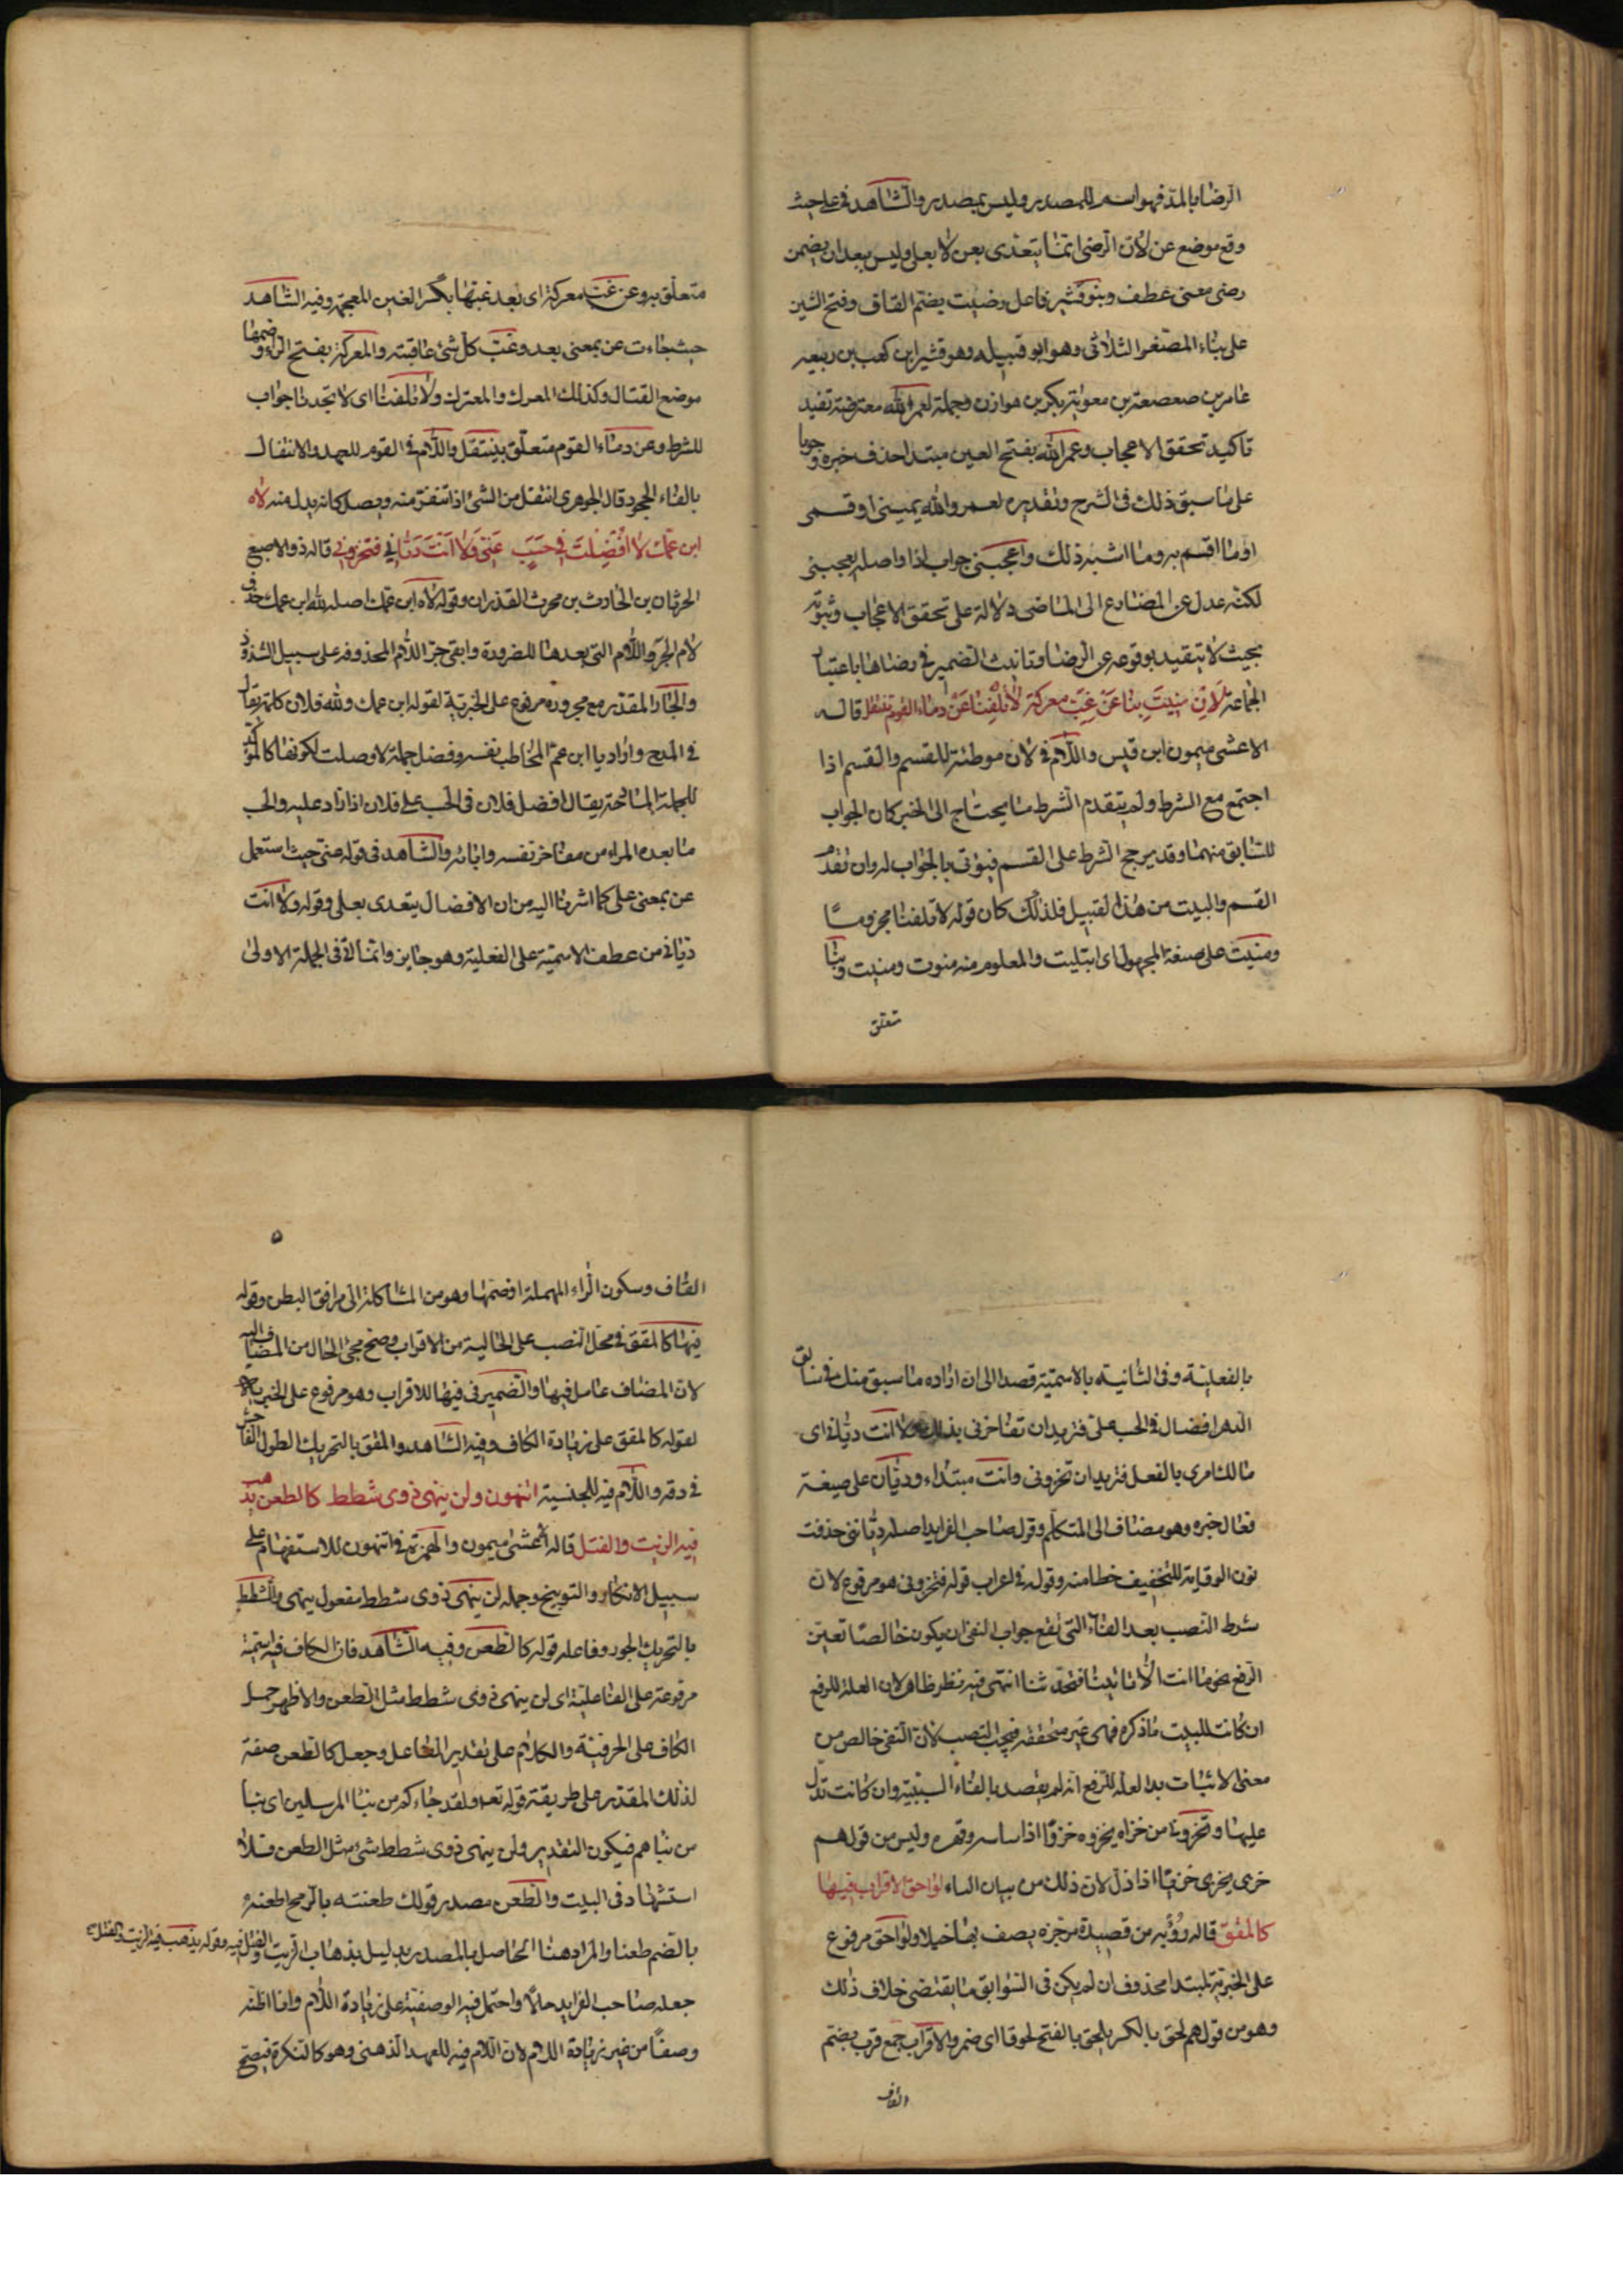 الرضا بالمد فهو اسم للمصدر وليس بمصدر والشاهد في على حيث
وقع موضع عن لان الرضى انما يتعدى بعن لا بعلى وليس ببعد ان يضمن
رضى معنى عطف وبنو قشير فاعل رضيت بضم القاف وفتح الشين
على بناء المصغر الثلاثى وهو ابو قبيله وهو قشير ابن كعب بن ربيعه
عامر بن صعصعة بن معوية بن بكر بن هوازن وجملة لعمر الله معترضة تفيد
تاكيد تحقق الاعجاب وعمر الله بفتح العين مبتدا حذف خبره وجوبا
على ما سبق ذلك فى الشرح وتقديره لعمر والله يمينى او قسمى
او ما اقسم به وما اشبه ذلك واعجبنى جواب اذا واصله يعجبنى
لكنه عدل عن المضارع الى الماضى دلالة على تحقق الاعجاب وثبوته
بحيث لا يتقيد بوقوعه عن الرضا وتانيث الضمير في رضاها باعتبار
الجماعة لان منيت بنا عن غب معركة لا تلفنا عن دماء القوم ننتفل قاله
الاعشى ميمون ابن قيس واللام فى لان موطئة للقسم والقسم اذا
اجتمع مع الشرط ولم يتقدم الشرط ما يحتاج الى الخبر كان الجواب
للسابق منهما وقد يرجح الشرط على القسم فيؤتى بالجواب له وان تقدم
القسم والبيت من هذا القبيل فلذلك كان قوله لا تلفنا مجزوما
ومنيت على صيغة المجهول اى ابتليت والمعلوم منه منوت ومنيت وبنا
متعلق
متعلق به وعن غب معركة اى بعد غبتها بكسر الغين المعجمة وفيه الشاهد
حيث جاءت عن بمعنى بعد وغب كل شئ عاقبته والمعركة بفتح الراء وضمها
موضع القتال وكذلك المعرك والمعترك ولا تلفنا اى لا تجدنا جواب
للشرط وعن دماء القوم متعلق بننتفل واللام فى القوم للعهد والانتفال
بالفاء الجحود قال الجوهرى انتفل من الشئ اذا تنفر منه ويصل كانه بدل منه لاه
ابن عمك لا افضلت في حسب عنى ولا انت ديانى فتخزونى قاله ذو الاصبع
الحرثان بن الحارث بن محرث القذران وقوله لاه ابن عمك اصله لله ابن عمك حذف
لام الجر واللام التى بعدها للضرورة وابقى جر اللام المحذوفه على سبيل الشذوذ
والجار المقدر مع مجروره مرفوع على الخبرية لقوله ابن عمك ولله فلان كلمة يقال
فى المدح واراد يا ابن عم المخاطب نفسه وفضل جملة لا وصلت لكونها كالمؤكدة
للجملة المادحة يقال افضل فلان فى الحسب على فلان اذا زاد عليه والحسب
ما بعده المراء من مفاخر نفسه وابائه والشاهد فى قوله عنى حيث استعمل
عن بمعنى على كما اشرنا اليه من ان الافضال يتعدى بعلى وقوله ولا انت
ديانى من عطف الاسمية على الفعلية وهو جايز وانما اتى فى الجملة الاولى
بالفعلية وفى الثانية بالاسمية قصدا الى ان اراده ما سبق منك فى سالق
الدهر افضال فى الحسب على فتريد ان تفاخرنى بذلك ولا انت ديانى اى
مالك امرى بالفعل فتريدان تخزونى وانت مبتداء وديان على صيغة
فعال خبره وهو مضاف الى المتكلم وقول صاحب الفرايد اصله ديانتى حذفت
نون الوقاية للتخفيف خطا منه وقوله فى اعراب قوله فتخزونى هو مرفوع لان
شرط النصب بعد الفاء التى تقع جواب النفى ان يكون خالصا تعين
الرفع نحو ما انت الا تاتينا فتحدثنا انتهى فيه نظر ظاهر لان العلة للرفع
ان كانت للبيت ما ذكره فهى غير متحققه فيجب النصب لان النفى خالص من
معنى الاثبات بل العلة للرفع انه لم يقصد بالفاء السببية وان كانت تدل
عليها وتخزونى من خزاه يخزوه خزوا اذا ساسه وقهره وليس من قولهم
خزى يخزى خزيا اذا ذل لان ذلك من بيان الياء لواحق الاقراب فيها
كالمقق قاله رؤبه من قصيدة مرجزه يصف بها خيلا ولواحق مرفوع
على الخبرية لمبتدا محذوف ان لم يكن فى السوابق ما يقتضى خلاف ذلك
وهو من قولهم لحق بالكسر يلحق بالفتح لحوقا اى ضمر والاقراب جمع قرب بضم
القاف
٥
القاف وسكون الراء المهملة او ضمها وهو من الشاكلة الى مراق البطن وقوله
فيها كالمقق فى محل النصب على الحالية من الاقراب وصح مجئ الحال من المضاف اليه
لان المضاف عامل فيها والضمير فى فيها للاقراب وهو مرفوع على الخبرية
لقوله كالمقق على زيادة الكاف وفيه الشاهد والمقق بالتحريك الطول الفاحش
فى دقه واللام فيه للجنسية اتنهون ولن ينهى ذوى شطط كالطعن يذهب
فيه الزيت والفتل قاله اعشى ميمون والهمزة فى اتنهون للاستفهام على
سبيل الانكار والتوبيخ وجملة لن ينهى ذوى شطط مفعول ينهى والشطط
بالتحريك الجور وفاعله قوله كالطعن وفيه الشاهد فان الكاف فيه اسمية
مرفوعة على الفاعلية اى لن ينهى ذوى شطط مثل الطعن والاظهر حمل
الكاف على الحرفية والكلام على تقدير الفاعل وجعل كالطعن صفة
لذلك المقدر على طريقة قوله تعه ولقد جاءكم من نبا المرسلين اى نبا
من نباهم فيكون التقدير ولن ينهى ذوى شطط شئ مثل الطعن فلا
استشهاد فى البيت والطعن مصدر قولك طعنته بالرمح اطعنه
بالضم طعنا والمراد هنا الحاصل بالمصدر بدليل بذهاب الزيت والفتل فيه وقوله يذهب فيه الزيت والفتل
جعله صاحب الفرايد حالا واحتمل فيه الوصفية على زيادة اللام وانا اظنه
وصفا من غير زيادة اللام لان اللام فيه للعهد الذهنى وهو كالنكرة فيصح